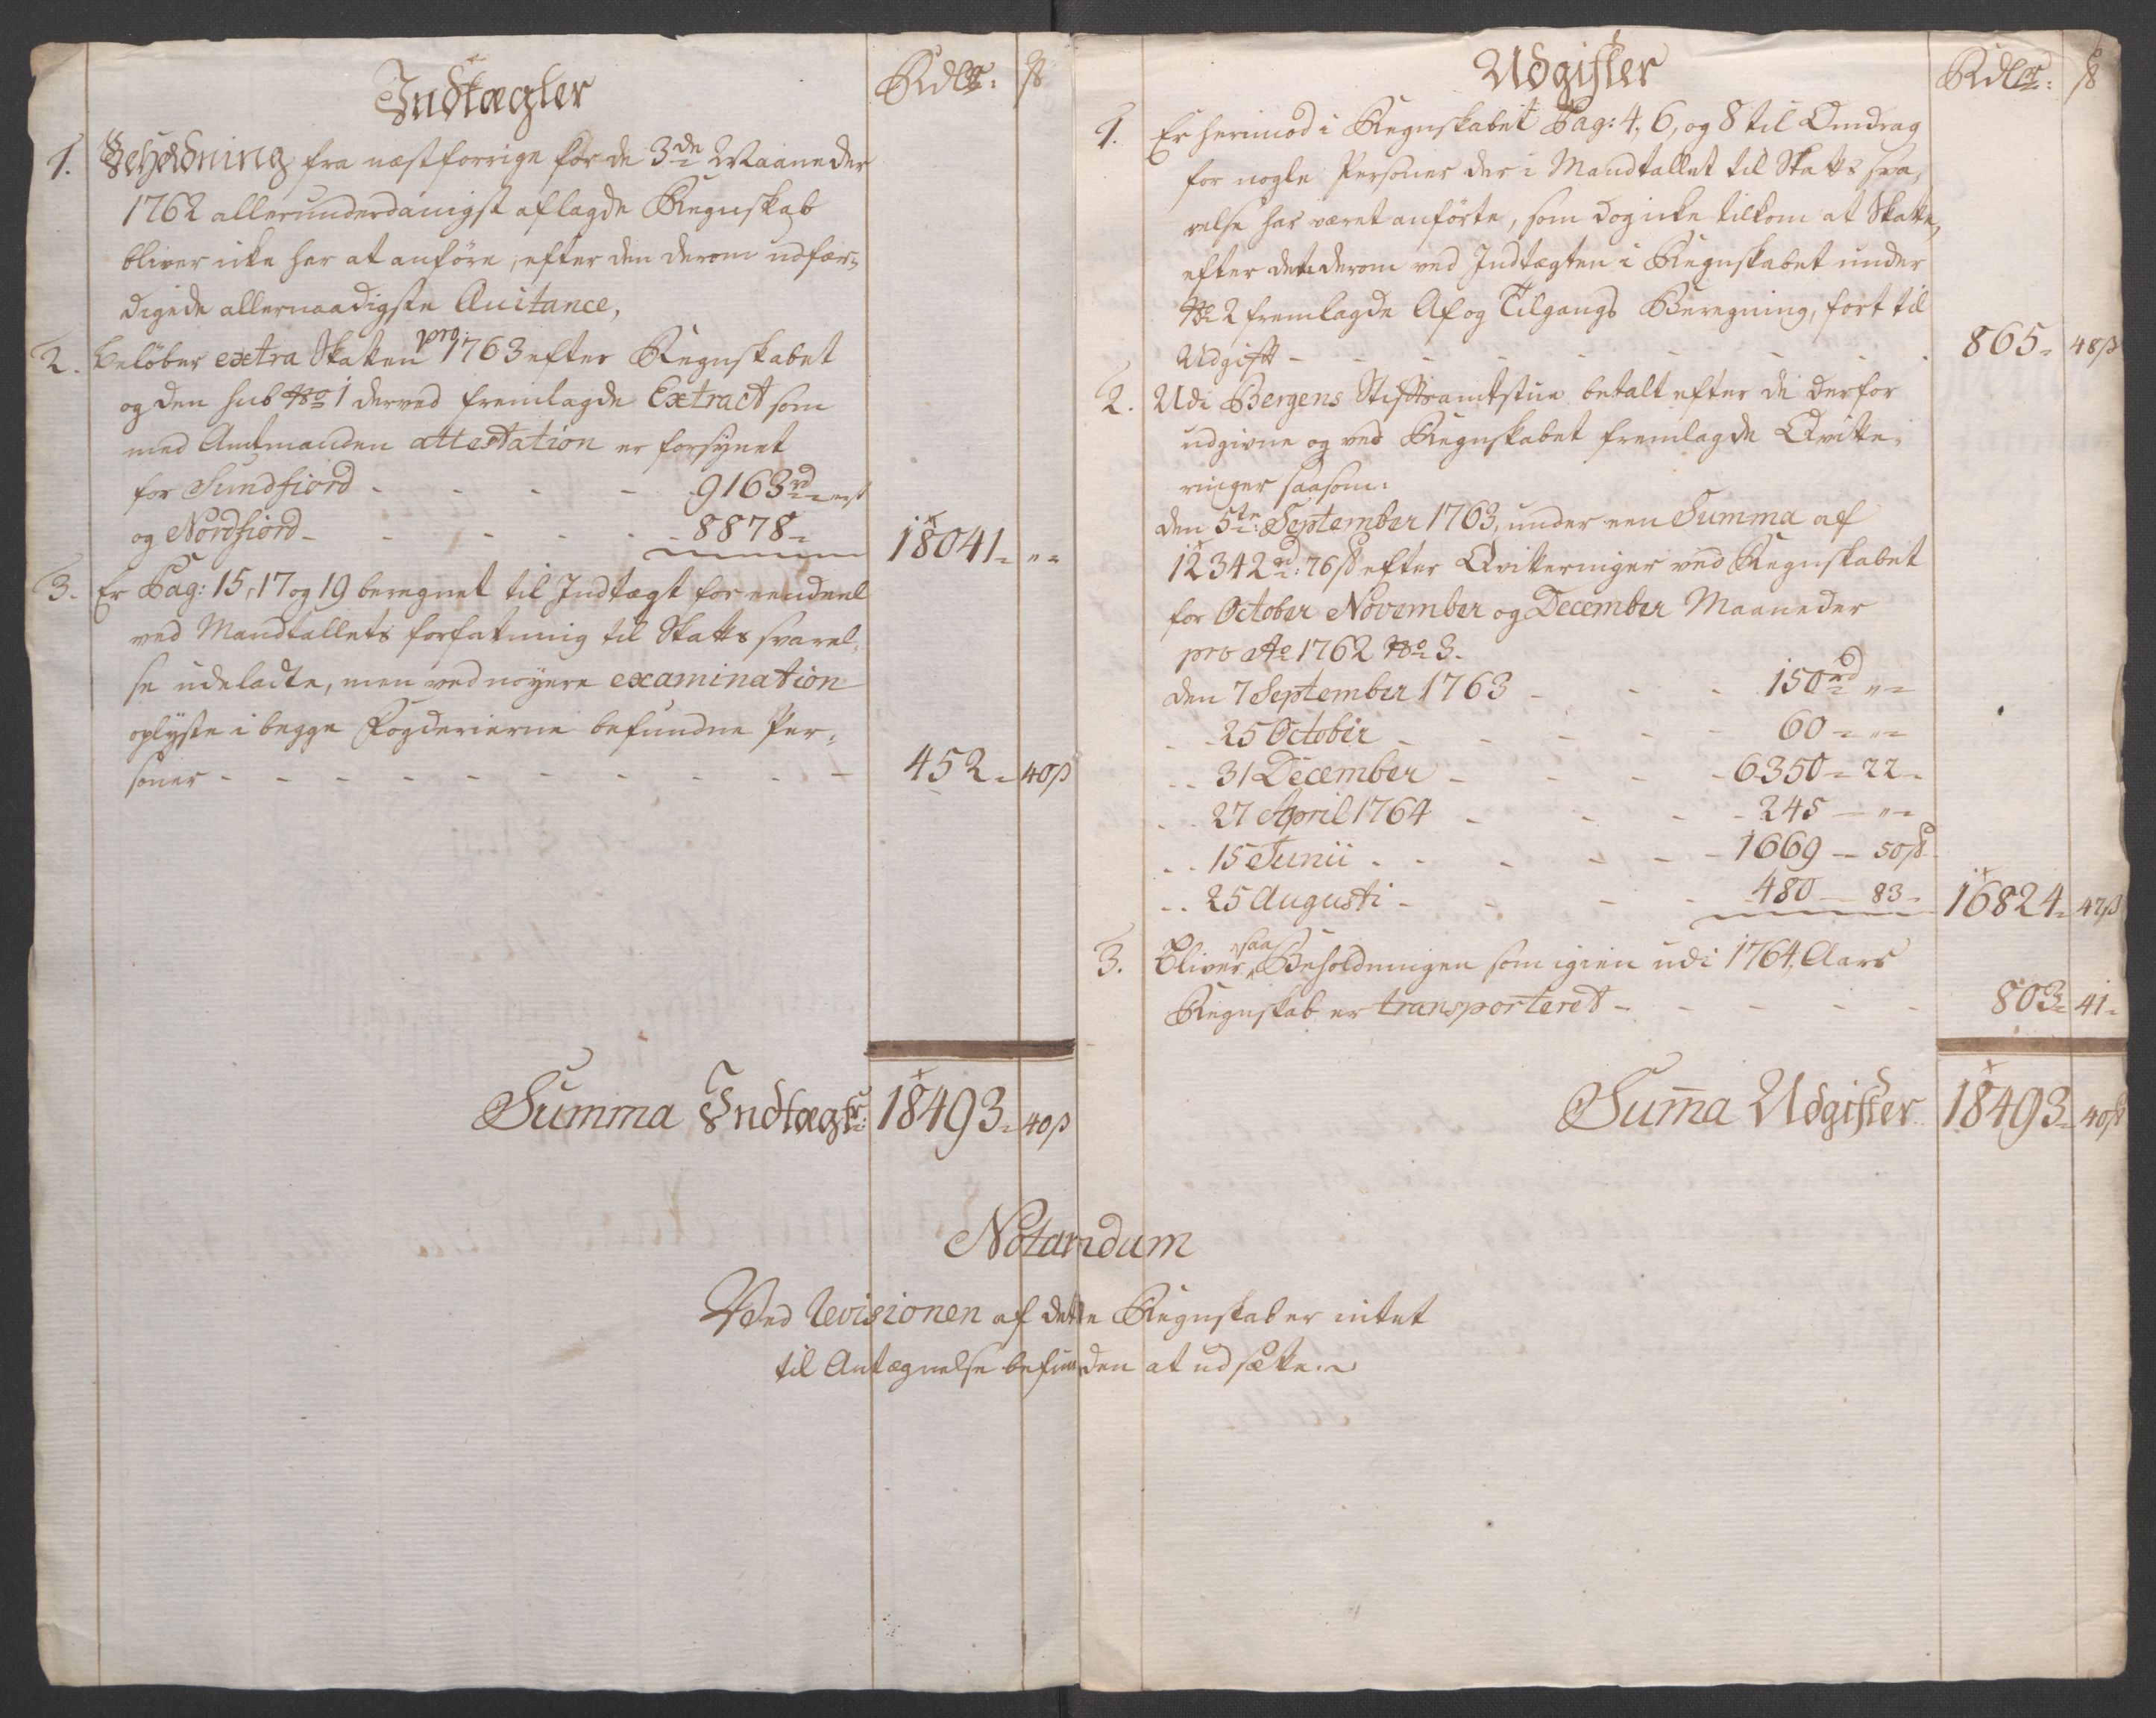 Indtægter
Rdlr: ß
1. Beholdning fra næstforrige for de 3de Maaneder
1762 allerunderdanigst aflagde Regnskab
bliver icke her at anföre, efter den derom udfær-
digede allernaadigste Quitance,
2. Belöber extra Skatten pro 1763 efter Regnskabet
og den sub No 1 derved fremlagde Extract som
med Amtmanden attestation er forsynet
for Sundfiord - - - - 9163rd
og Nordfiord - - - - - 8878 - 18041 - "-
3. Er Pag: 15, 17 og 19 beregnet til Indtægt for eendeel
ved Mandtallets forfatning til Skatts svarel-
se udeladte, men ved nøyere examination
oplyste i begge Fogderierne befundne Per-
soner - - - - - - - - - - 452 - 40ß
Summa Indtægtr: 18493 - 40ß
Udgifter
Rdlr: ß
1. Er herimod i Regnskabet Pag: 4, 6, og 8 til Omdrag
for nogle Personer der i Mandtallet til Skatts sva-
relse har været anförte, som dog icke tilkom at Skatte,
efter det derom ved Indtægten i Regnskabet under
No 2 fremlagde Af og Tilgangs Beregning, fört til
Udgift - - - - - - - - 865 - 48ß
2. Udi Bergens Stiftamtstue betalt efter de derfor
udgivne og ved Regnskabet fremlagde Qvitte-
ringer saasom:
den 5te: September 1763, under een Summa af
12342rd: 76ß efter Qvitteringer ved Regnskabet
for October November og December Maaneder
pro Ao 1762 No 3.
den 7 September 1763 - - - 150rd "-
- - 25 October - - - - - 60 - "-
- - 31 December - - - - 6350 - 22 -
- - 27 April 1764 - - - - 245 - "-
- - 15 Junii - - - - - - 1669 - 50ß
- - 25 Augusti - - - - 480 - 83 - 16824 - 47ß
3. Bliver saa Beholdningen som igien udi 1764 Aars
Regnskab er transporteret - - - - - 803 - 41 -
Suma Udgifter 18493 - 40ß
Notandum
Ved Revisionen af dette Regnskab er intet
til Antægnelse befunden at udsætte.